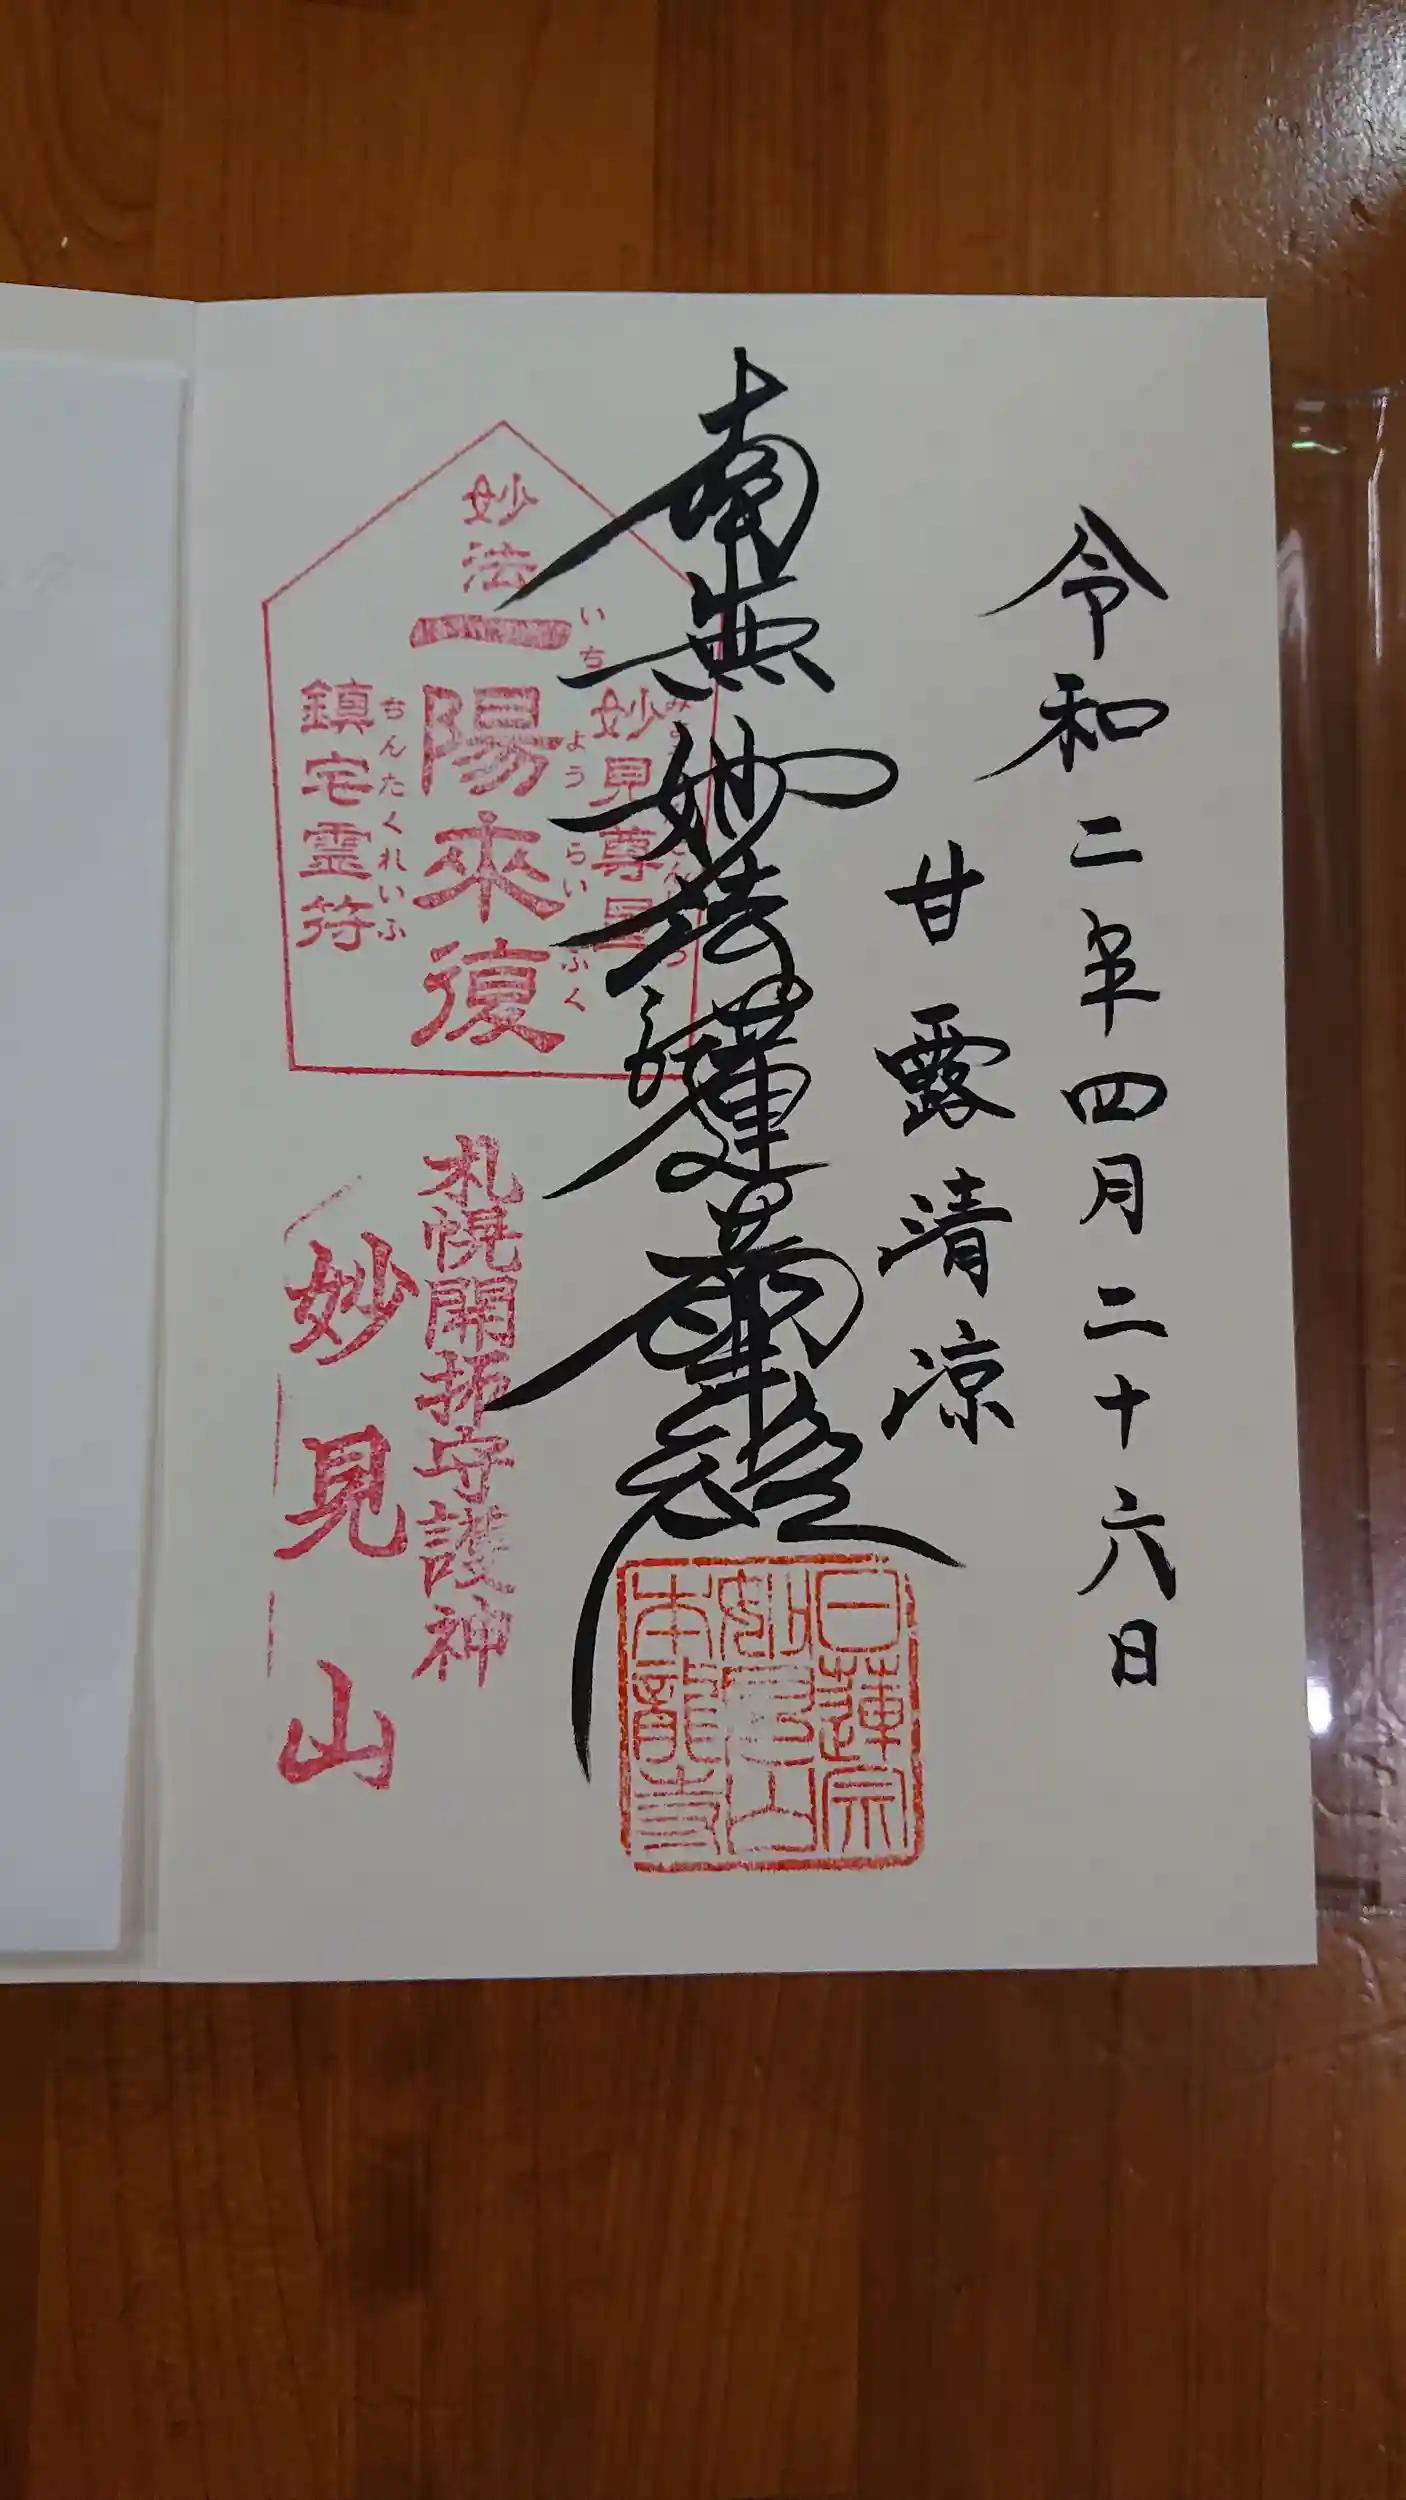 令和二年四月二十六日
甘露清凉
南無妙法蓮華経
日蓮宗
妙見山
本龍寺
妙法
妙見尊星
いちようらいふく
一陽來復
ちんたくれいふ
鎮宅霊符
札幌開拓守護神
妙見山